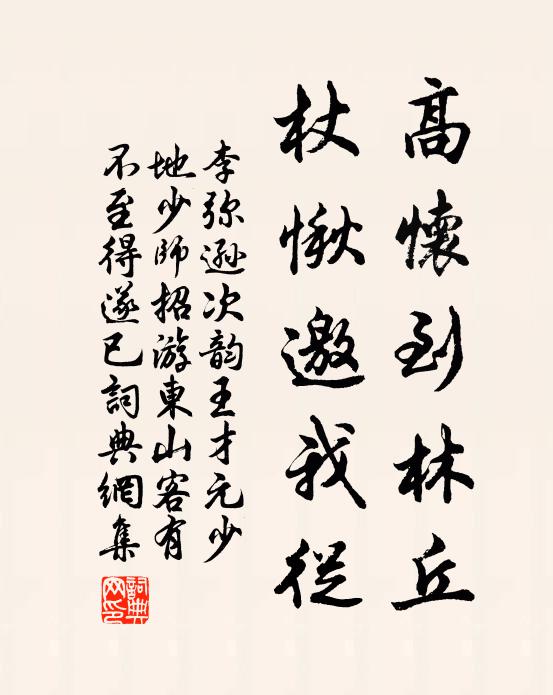 高懷到林丘
杖楸邀我從
李弥遜次韵王才元少
地少師招游東山客有
不至得遂已詞典網集
詞典網印